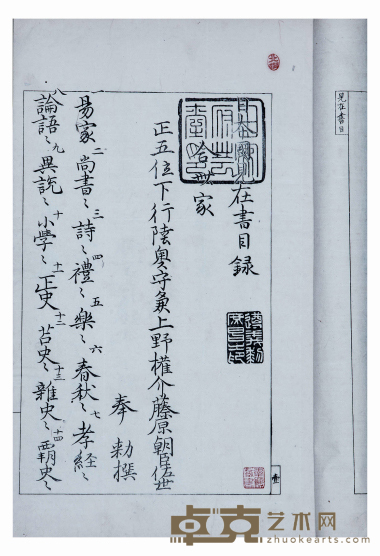 日本國見在書目録
合卌家
正五位下行陸奥守兼上野權介藤原朝臣佐世
奉 勅撰
一易家 二尚書〻 三詩〻 四禮〻 五樂〻 六春秋〻 七孝経〻
八論語〻 九異説〻 十小學〻 十一正史〻 十二古史〻 十三雜史〻 十四覇史〻
見在書目
卓克艺术网
www.zhuokearts.com